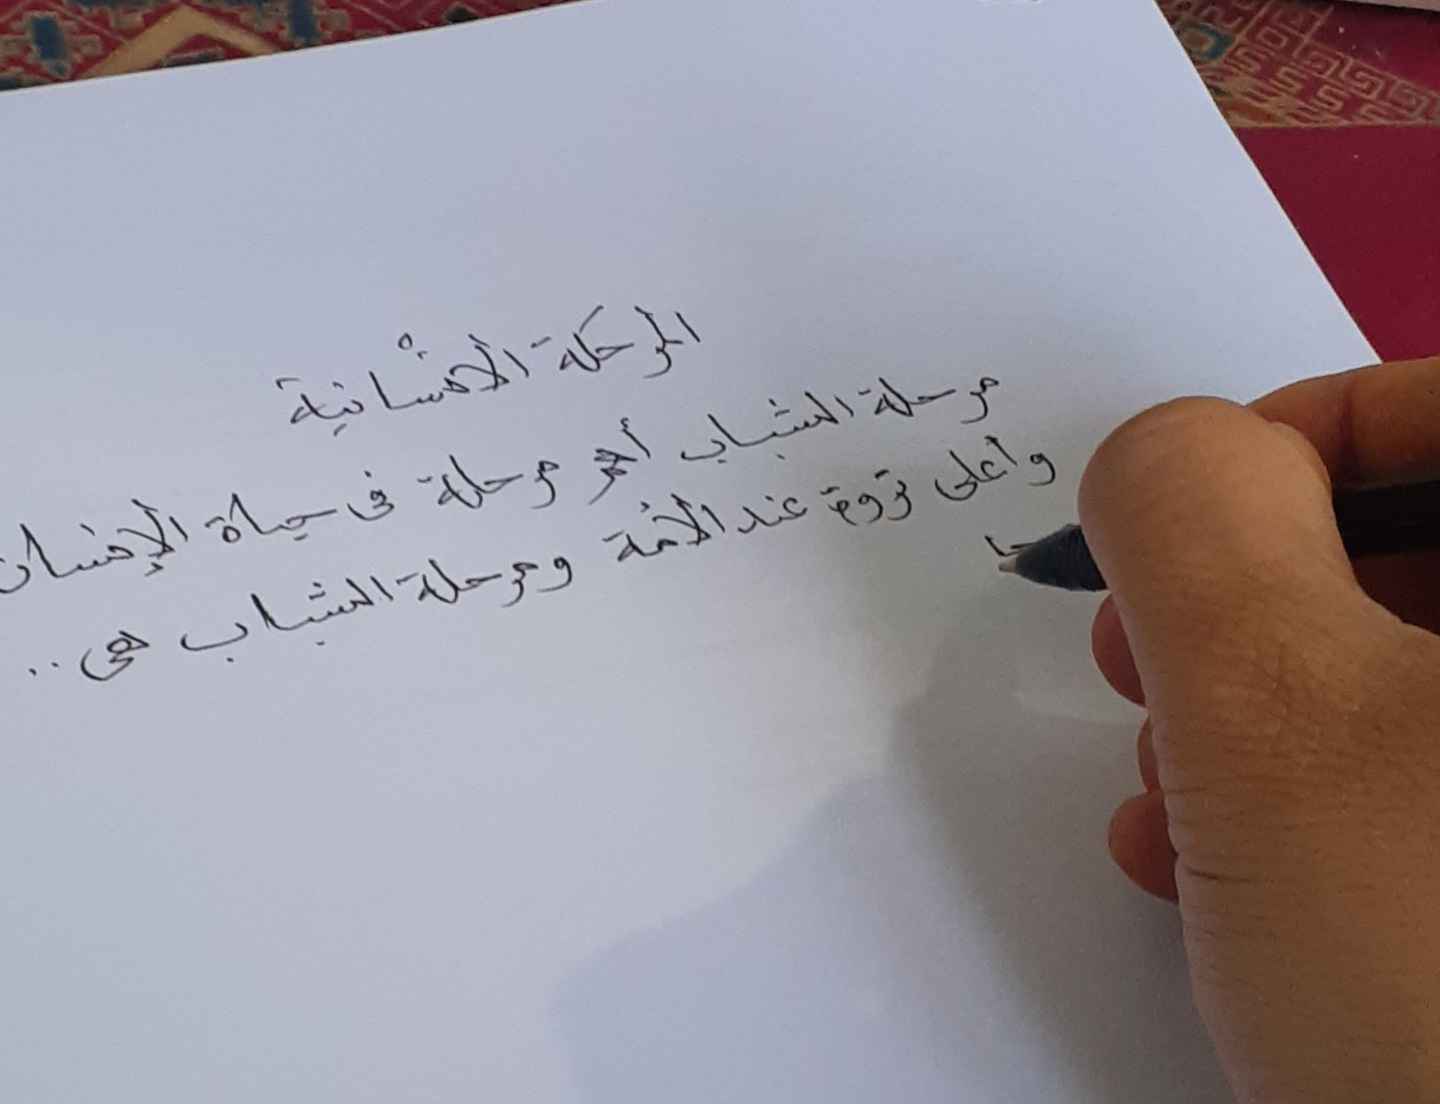 المرحَلة الانْسانية
مرحلة الشباب أهم مرحلة في حياة الإنسان
وأعلى ثروة عند الأمة ومرحلة الشباب هي ..